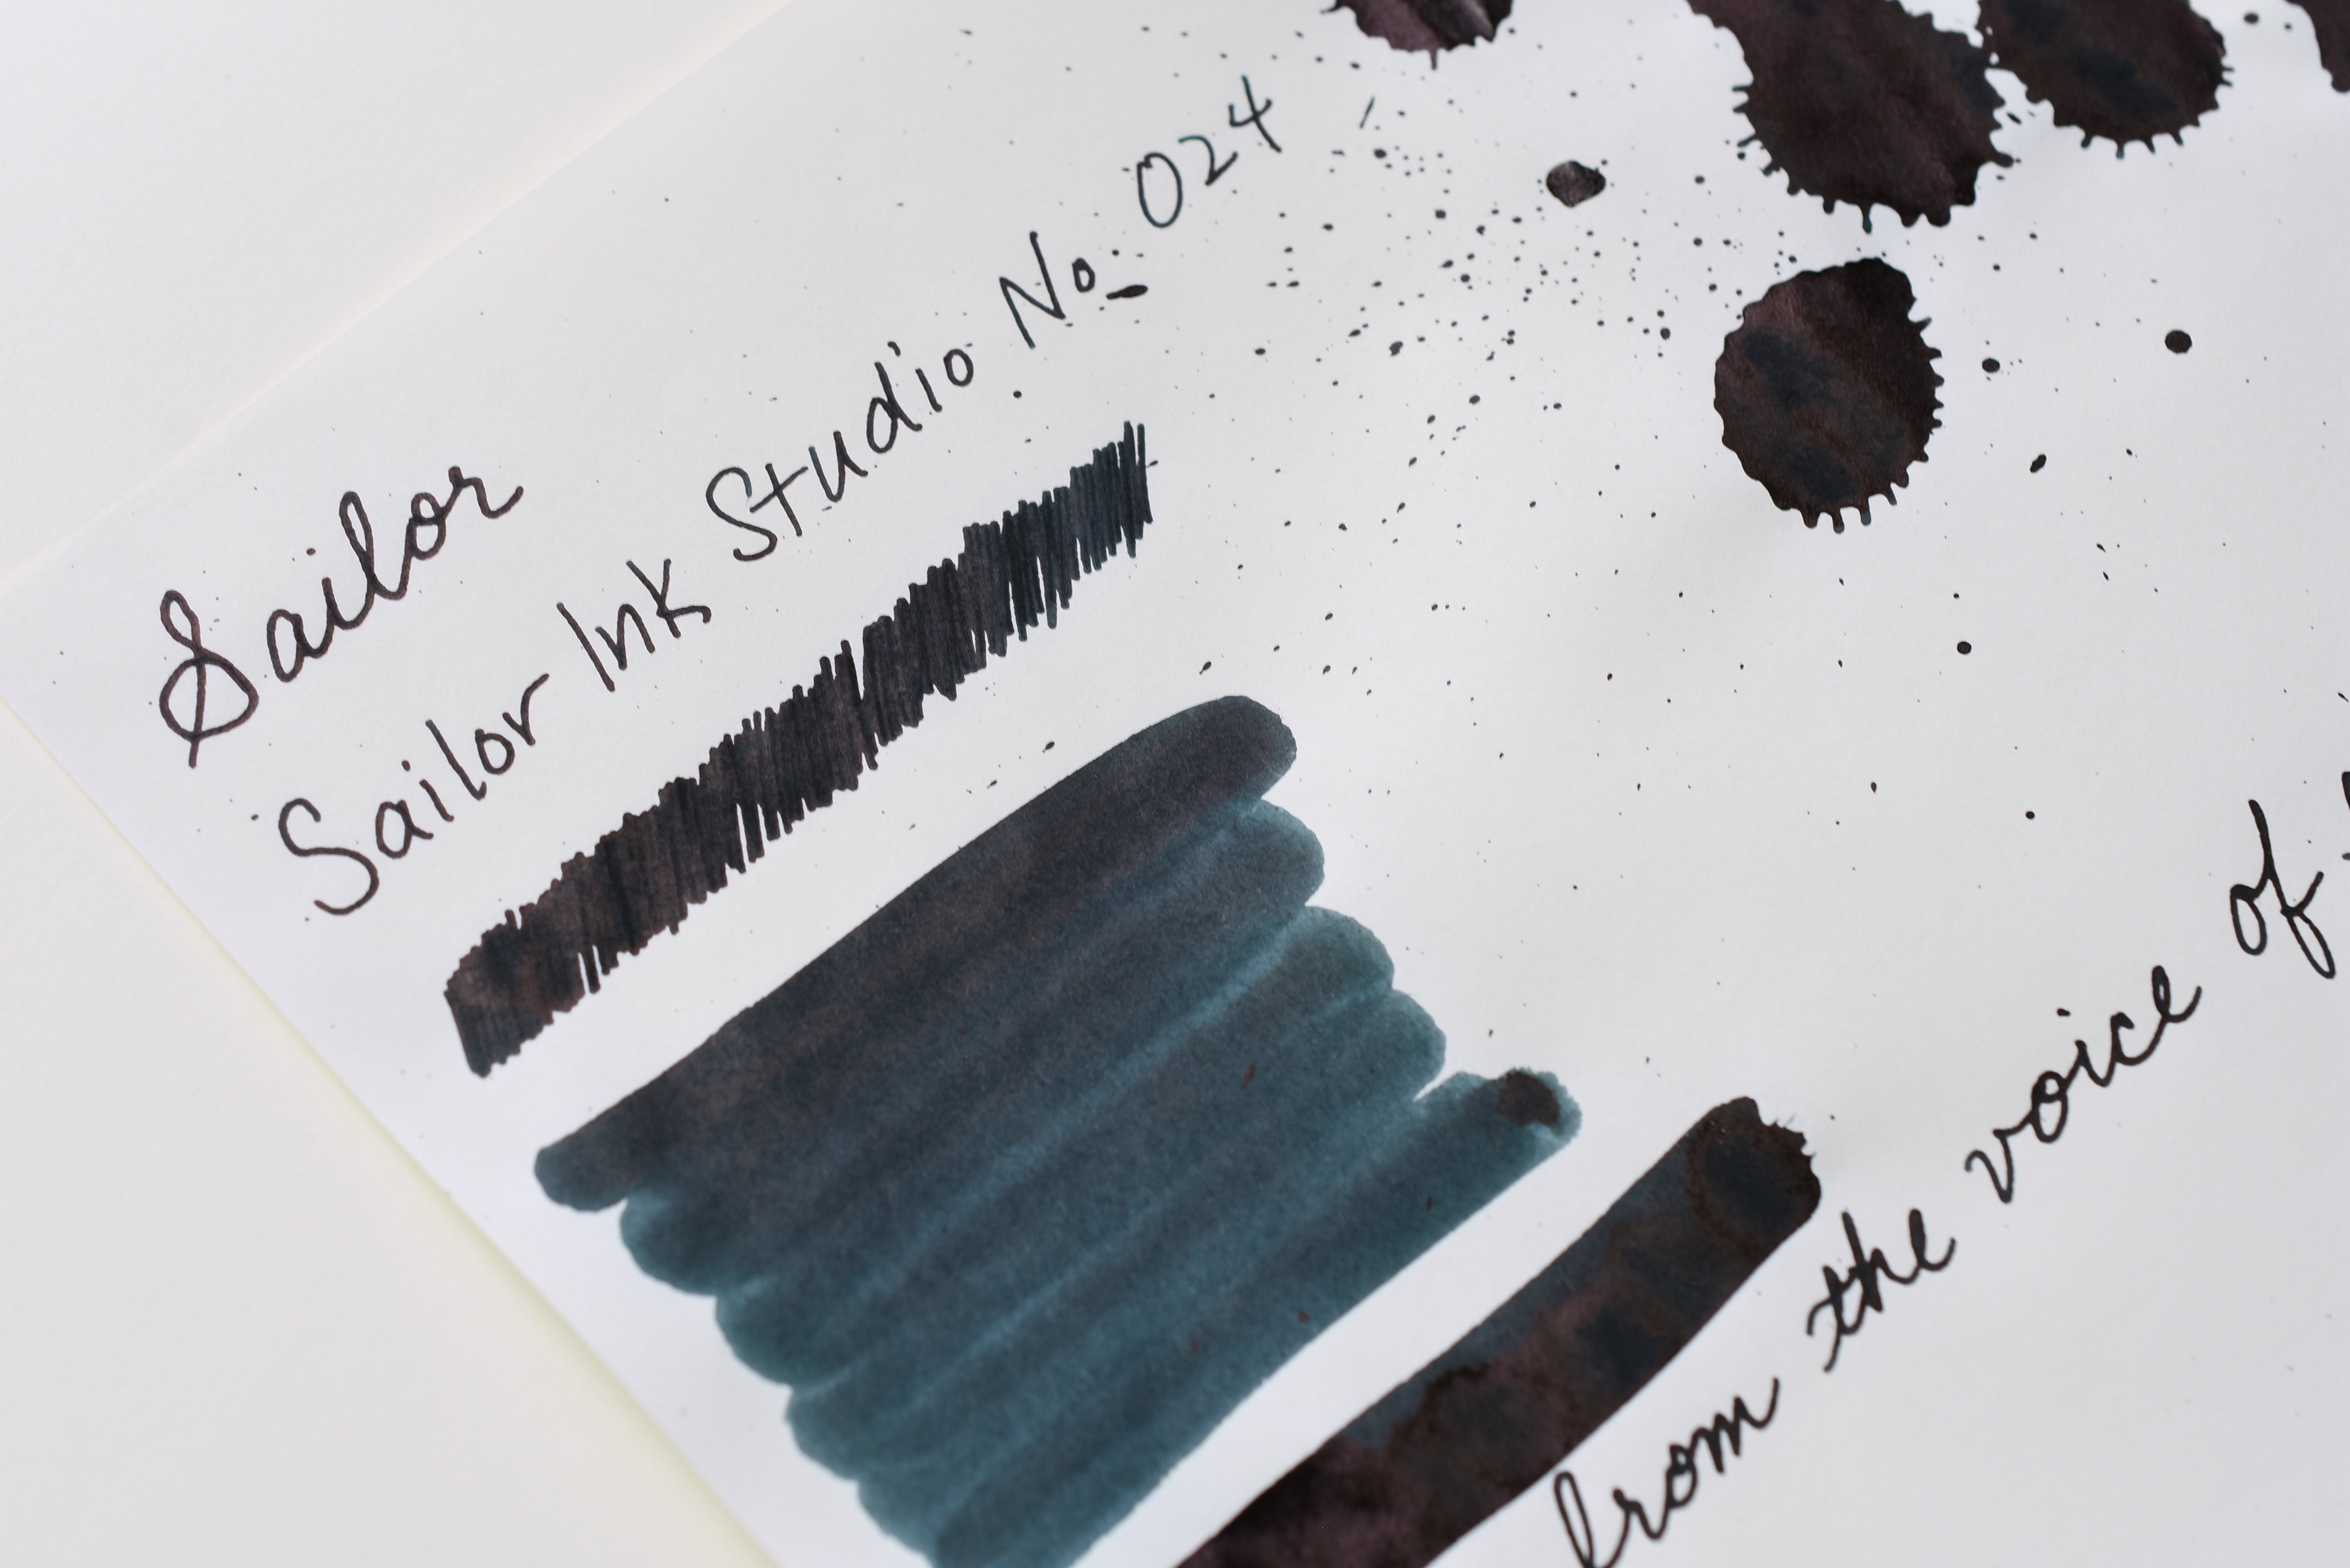 Sailor
Sailor Ink Studio No. 024
from the voice of